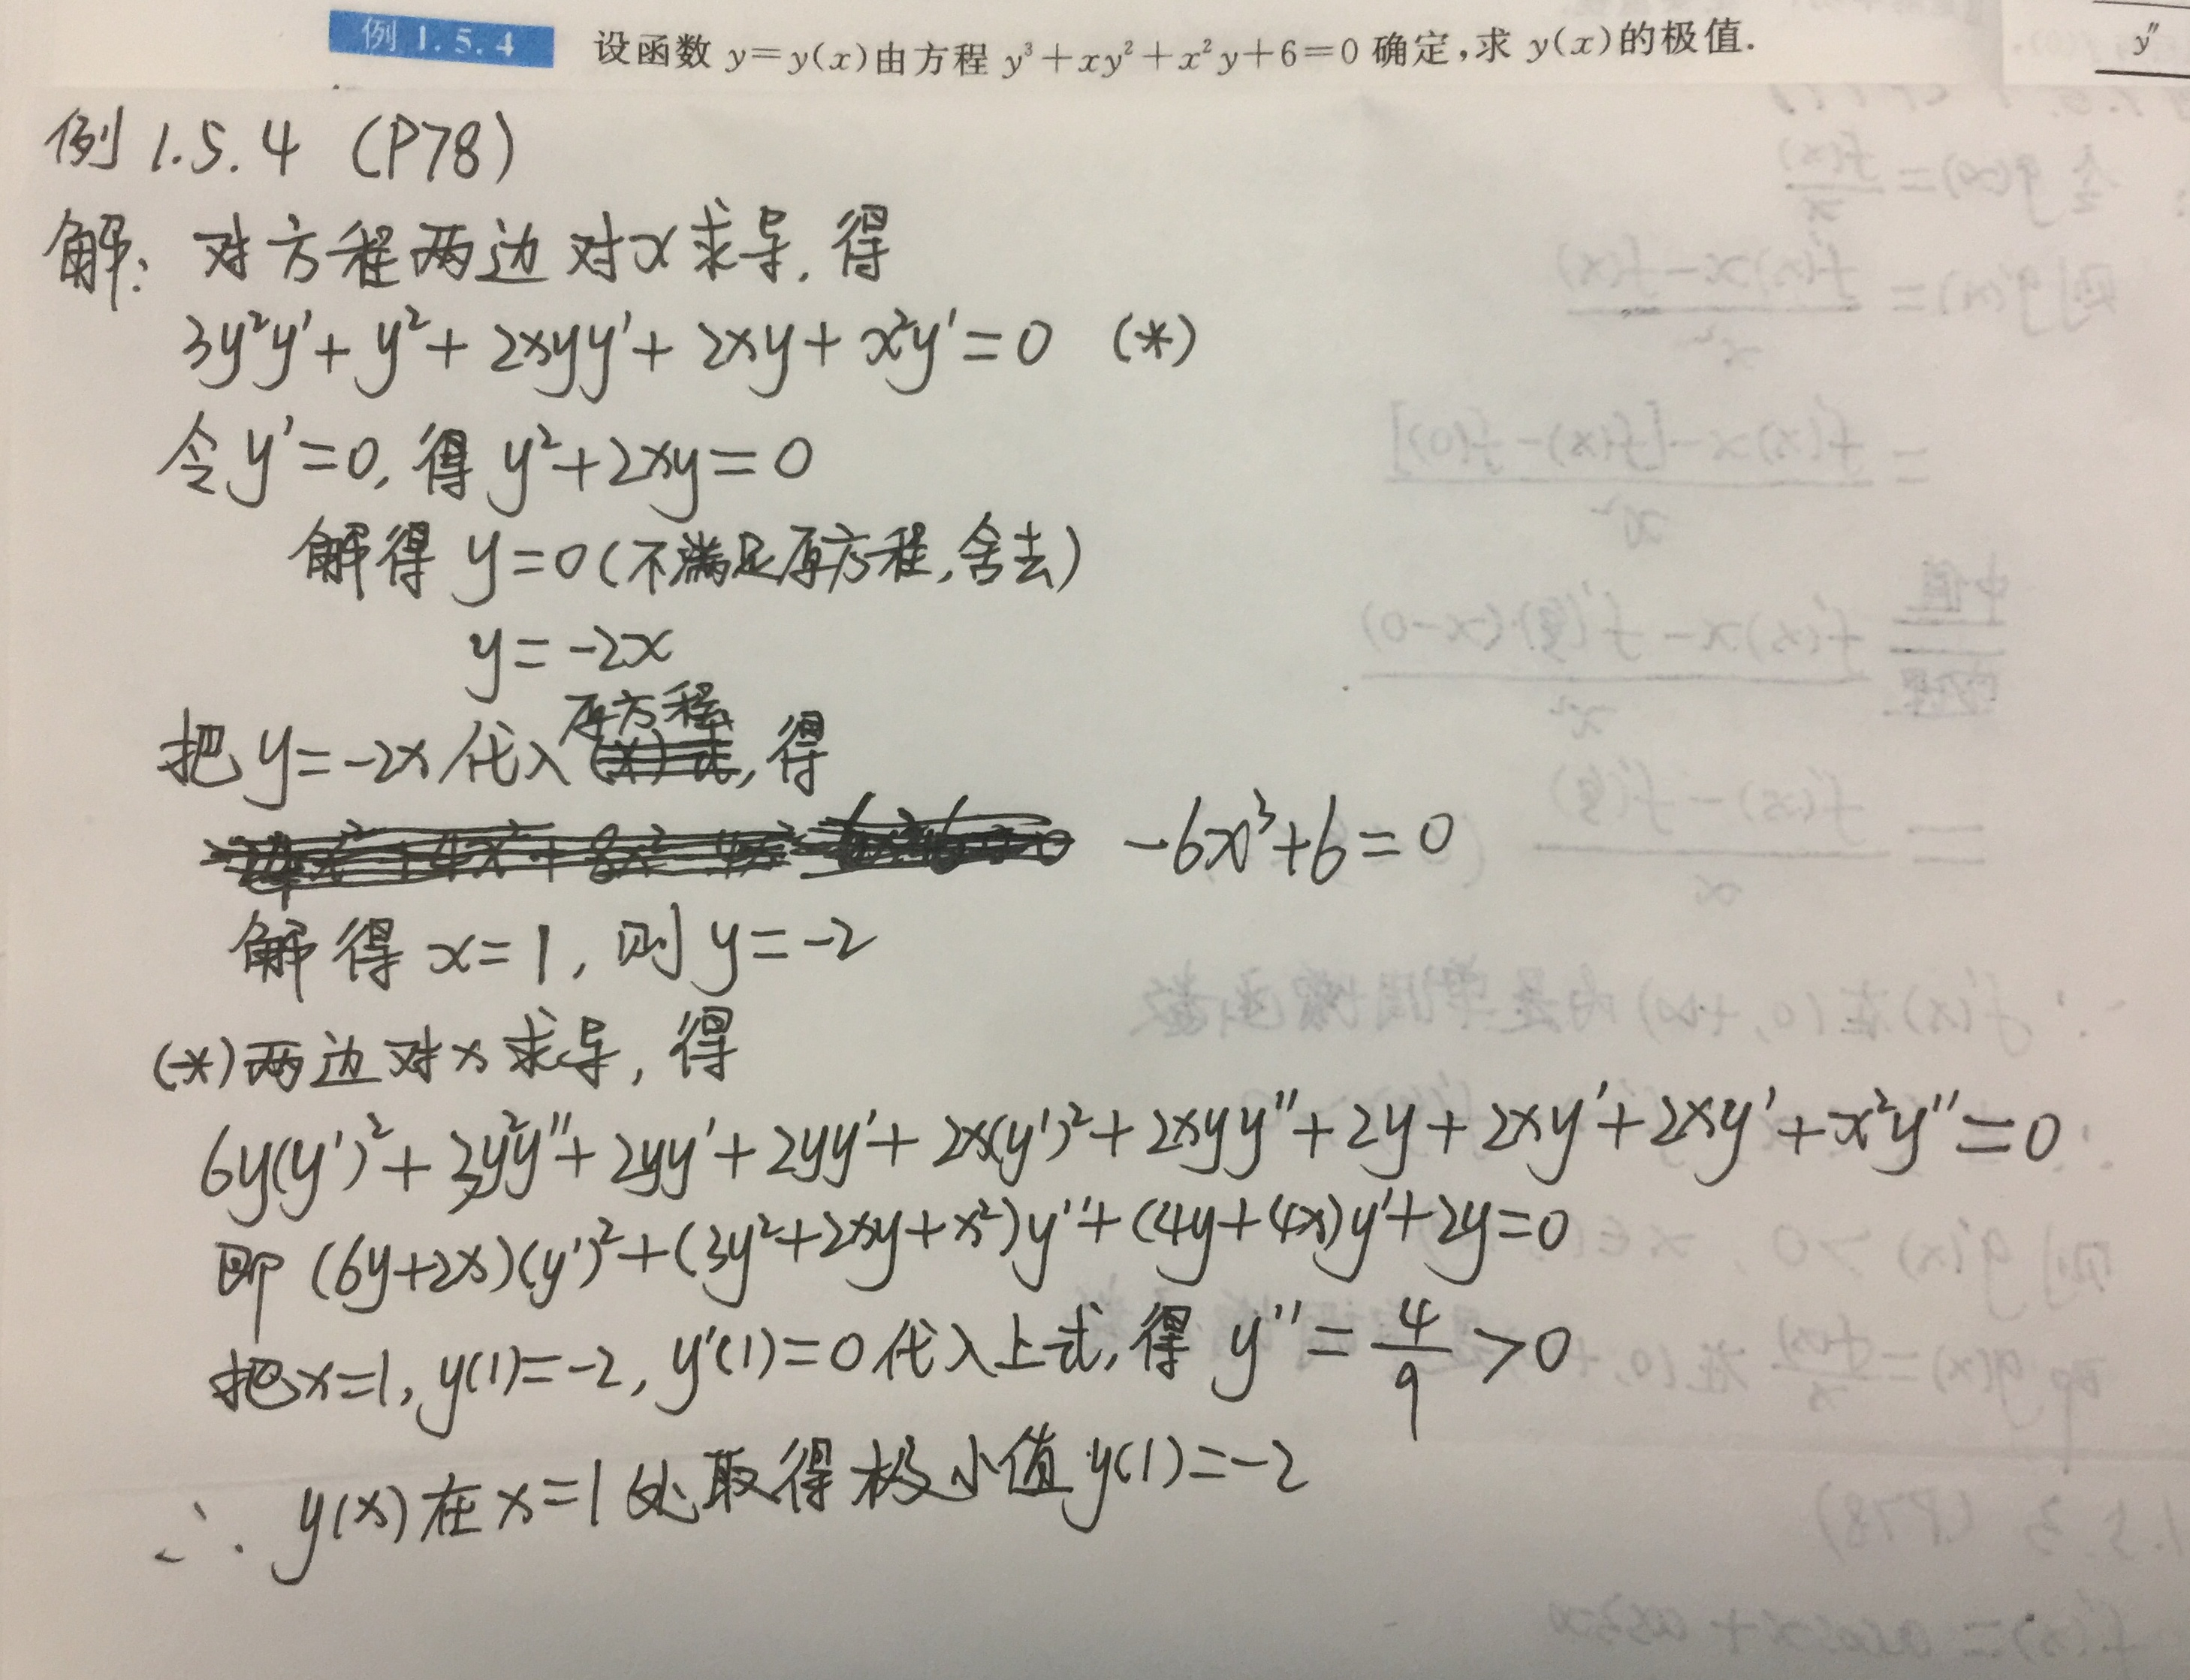 例 1.5.4 设函数 y=y(x)由方程 y³+xy²+x²y+6=0 确定,求 y(x)的极值.
y″
例 1.5.4 (P78)
解: 对方程两边对x求导,得
3y²y′+y²+2xyy′+2xy+x²y′=0 (*)
令y′=0,得 y²+2xy=0
解得 y=0(不满足原方程,舍去)
y=-2x
把y=-2x代入原方程,得
-6x³+6=0
解得 x=1, 则 y=-2
(*)两边对x求导,得
6y(y′)²+3y²y″+2yy′+2yy′+2x(y′)²+2xyy″+2y+2xy′+2xy′+x²y″=0
即 (6y+2x)(y′)²+(3y²+2xy+x²)y″+(4y+4x)y′+2y=0
把x=1, y(1)=-2, y′(1)=0代入上式,得 y″=4/9>0
∴ y(x)在x=1处取得极小值y(1)=-2